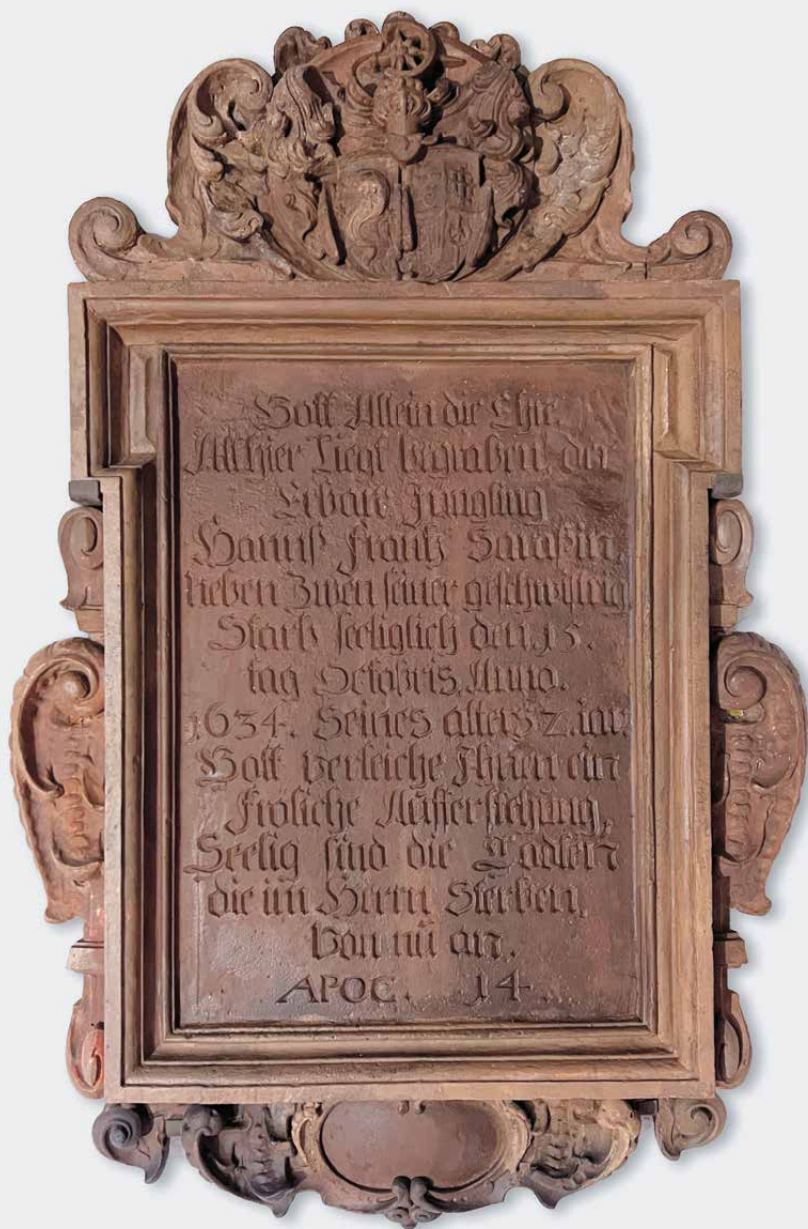 Gott Allein die Ehr.
Alhier Liegt begraben, der
Erbare Jungling
Hannß Frantz Saraßin,
neben Zwen seiner geschwistrig
Starb seeliglich den 15.
tag Octobris, Anno.
1634. Seines alters 2. iar.
Gott verleiche Ihnen ein
Froliche Aufferstehung,
Seelig sind die Todten
die im Herrn Sterben,
Von nu an.
APOC. 14.